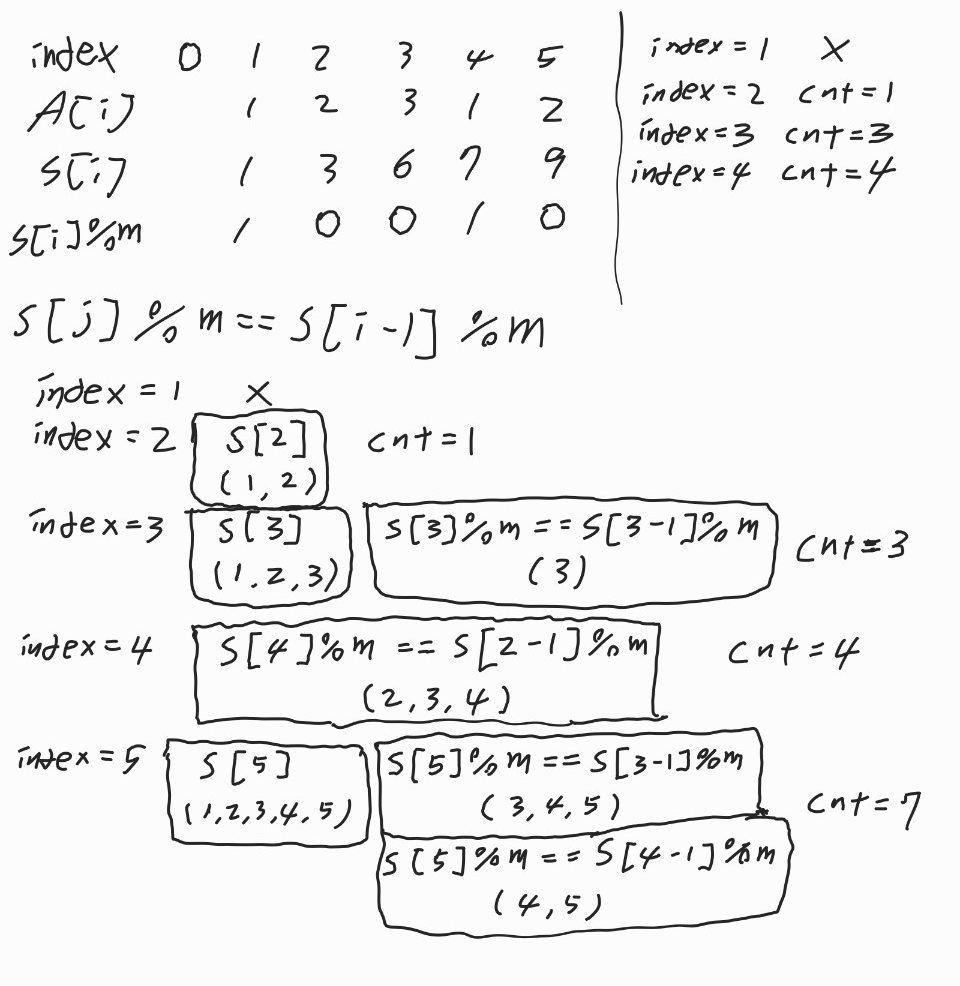 index 0 1 2 3 4 5
A[i] 1 2 3 1 2
S[i] 1 3 6 7 9
S[i]%m 1 0 0 1 0
index = 1 X
index = 2 cnt = 1
index = 3 cnt = 3
index = 4 cnt = 4
S[j] % m == S[i-1] % m
index = 1 X
index = 2 S[2] cnt = 1
(1, 2)
index = 3 S[3] S[3]%m == S[3-1]%m cnt = 3
(1. 2, 3) (3)
index = 4 S[4]%m == S[2-1]%m cnt = 4
(2, 3, 4)
index = 5 S[5] S[5]%m == S[3-1]%m
(1,2,3,4,5) (3, 4, 5) cnt = 7
S[5]%m == S[4-1]%m
(4, 5)